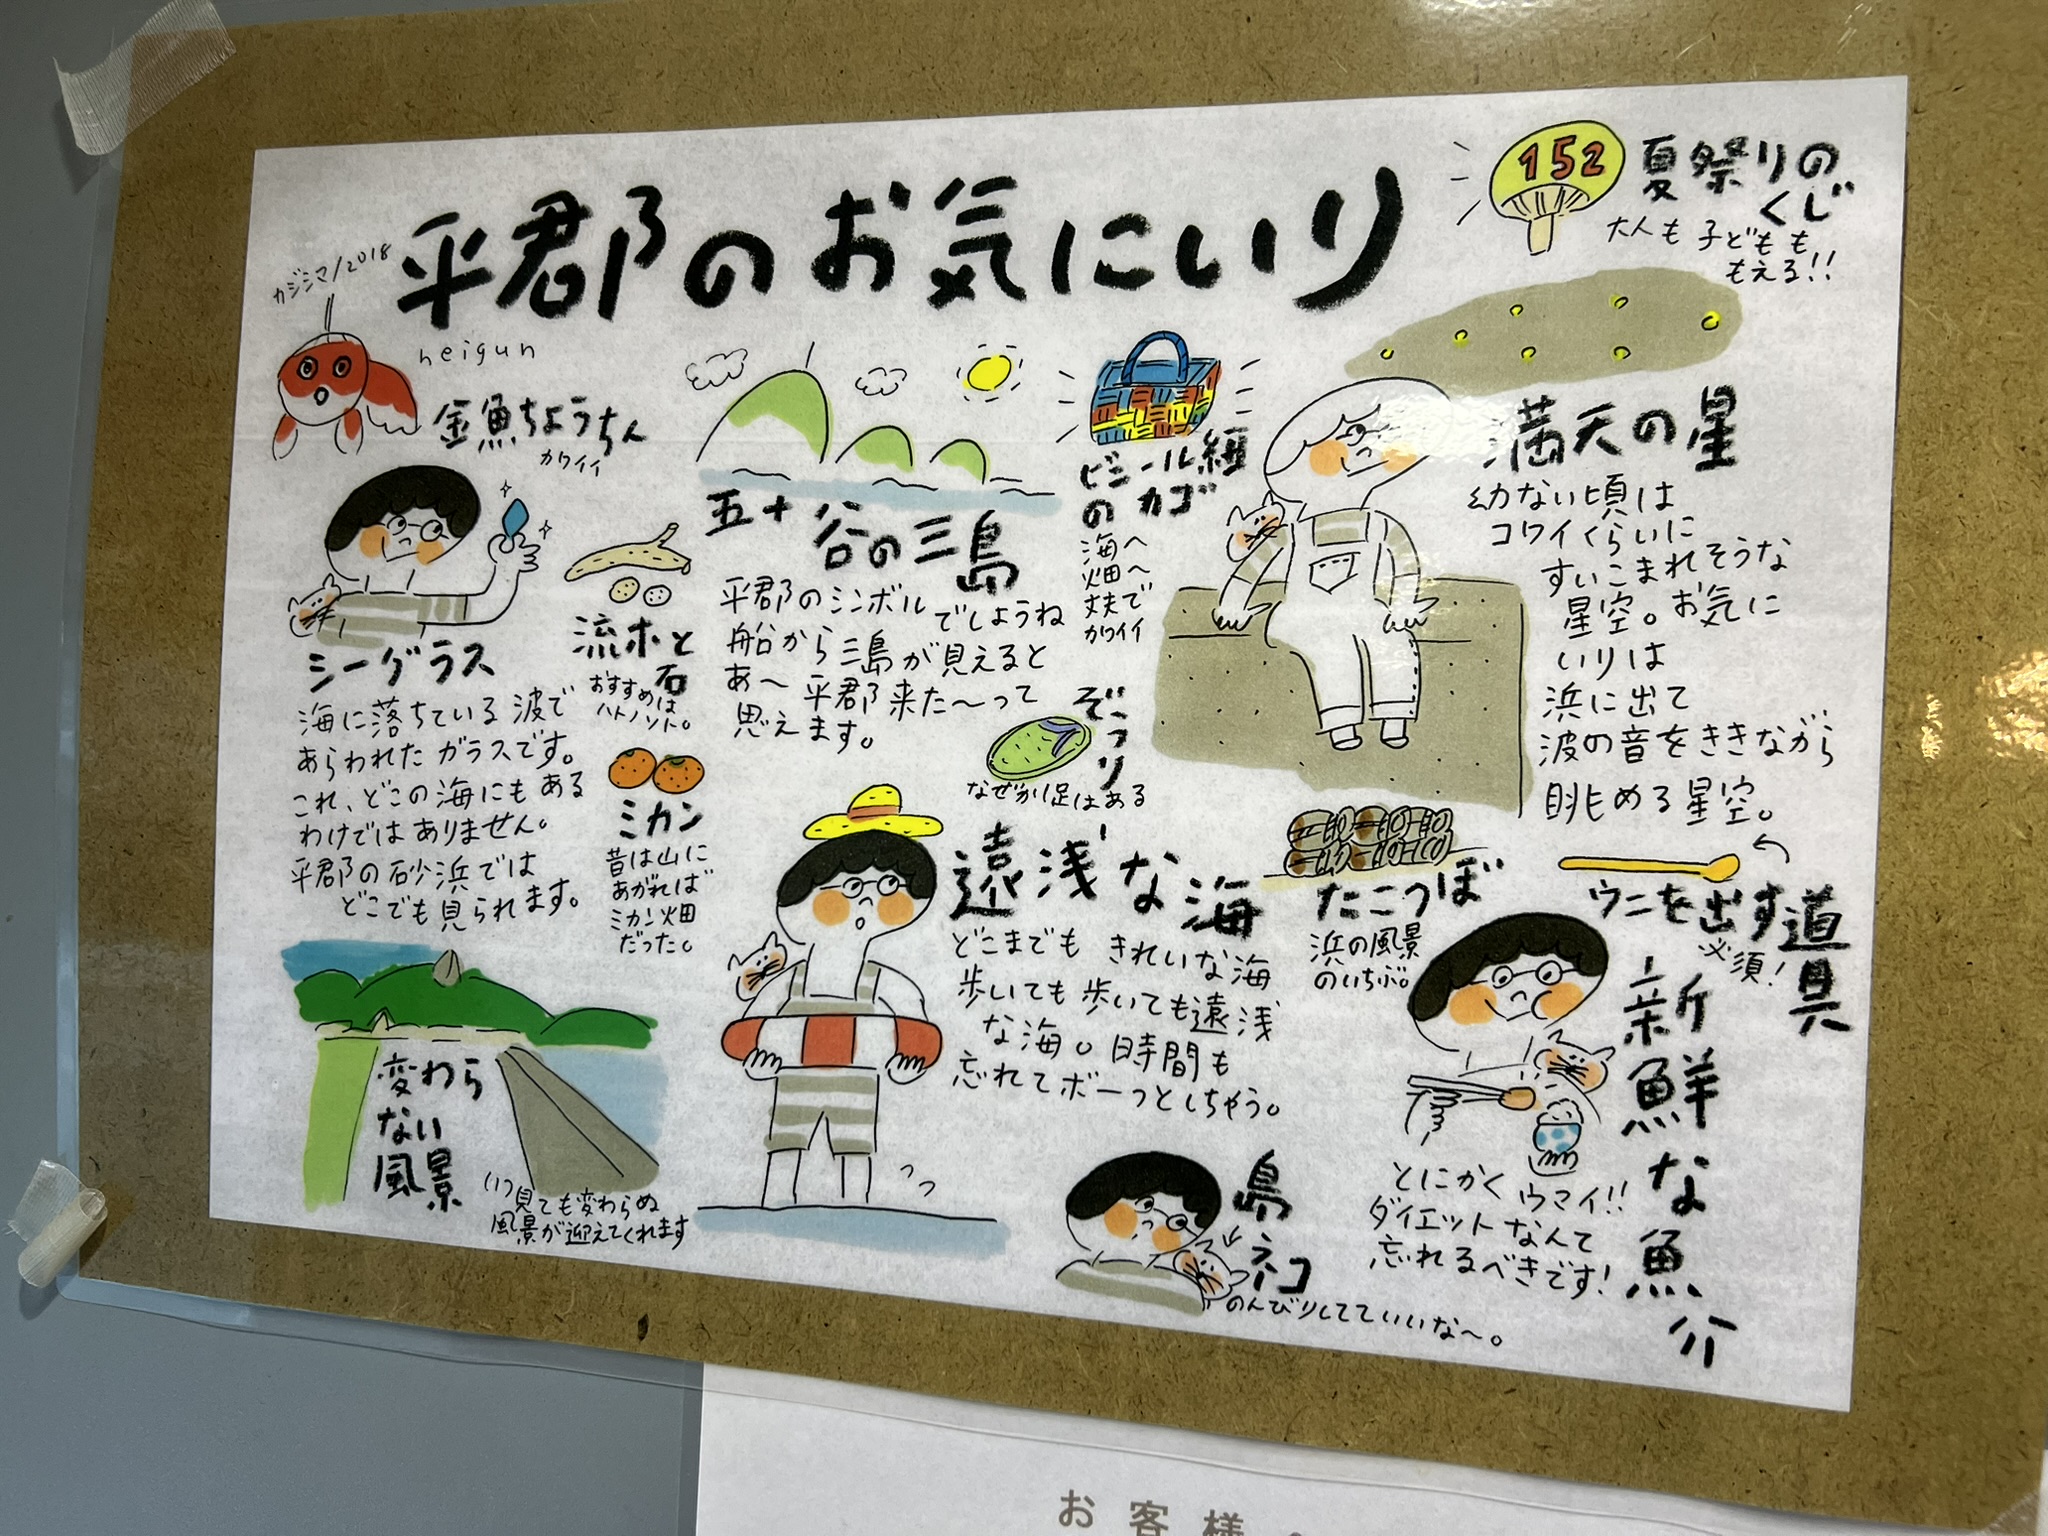 平郡のお気にいり
カジシマ/2018
heigun
152
夏祭りの
くじ
大人も子どもも
もえる!!
金魚ちょうちん
カワイイ
シーグラス
海に落ちている波で
あらわれたガラスです。
これ、どこの海にもある
わけではありません。
平郡の砂浜では
どこでも見られます。
流木と
石
おすすめは
ハトノソト。
ミカン
昔は山に
あがれば
ミカン畑
だった。
五十谷の三島
平郡のシンボルでしょうね
船から三島が見えると
あ〜平郡来た〜って
思えます。
ビニール紐
のカゴ
海へ
畑へ
丈夫で
カワイイ
ぞうり
なぜか1足はある
満天の星
幼ない頃は
コワイくらいに
すいこまれそうな
星空。お気に
いりは
浜に出て
波の音をききながら
眺める星空。
遠浅な海
どこまでもきれいな海
歩いても歩いても遠浅
な海。時間も
忘れてボーっとしちゃう。
たこつぼ
浜の風景
のいちぶ。
ウニを出す道具
必須!
新鮮な魚介
とにかくウマイ!!
ダイエットなんて
忘れるべきです!
変わら
ない
風景
いつ見ても変わらぬ
風景が迎えてくれます
島ネコ
のんびりしてていいな〜。
お客様